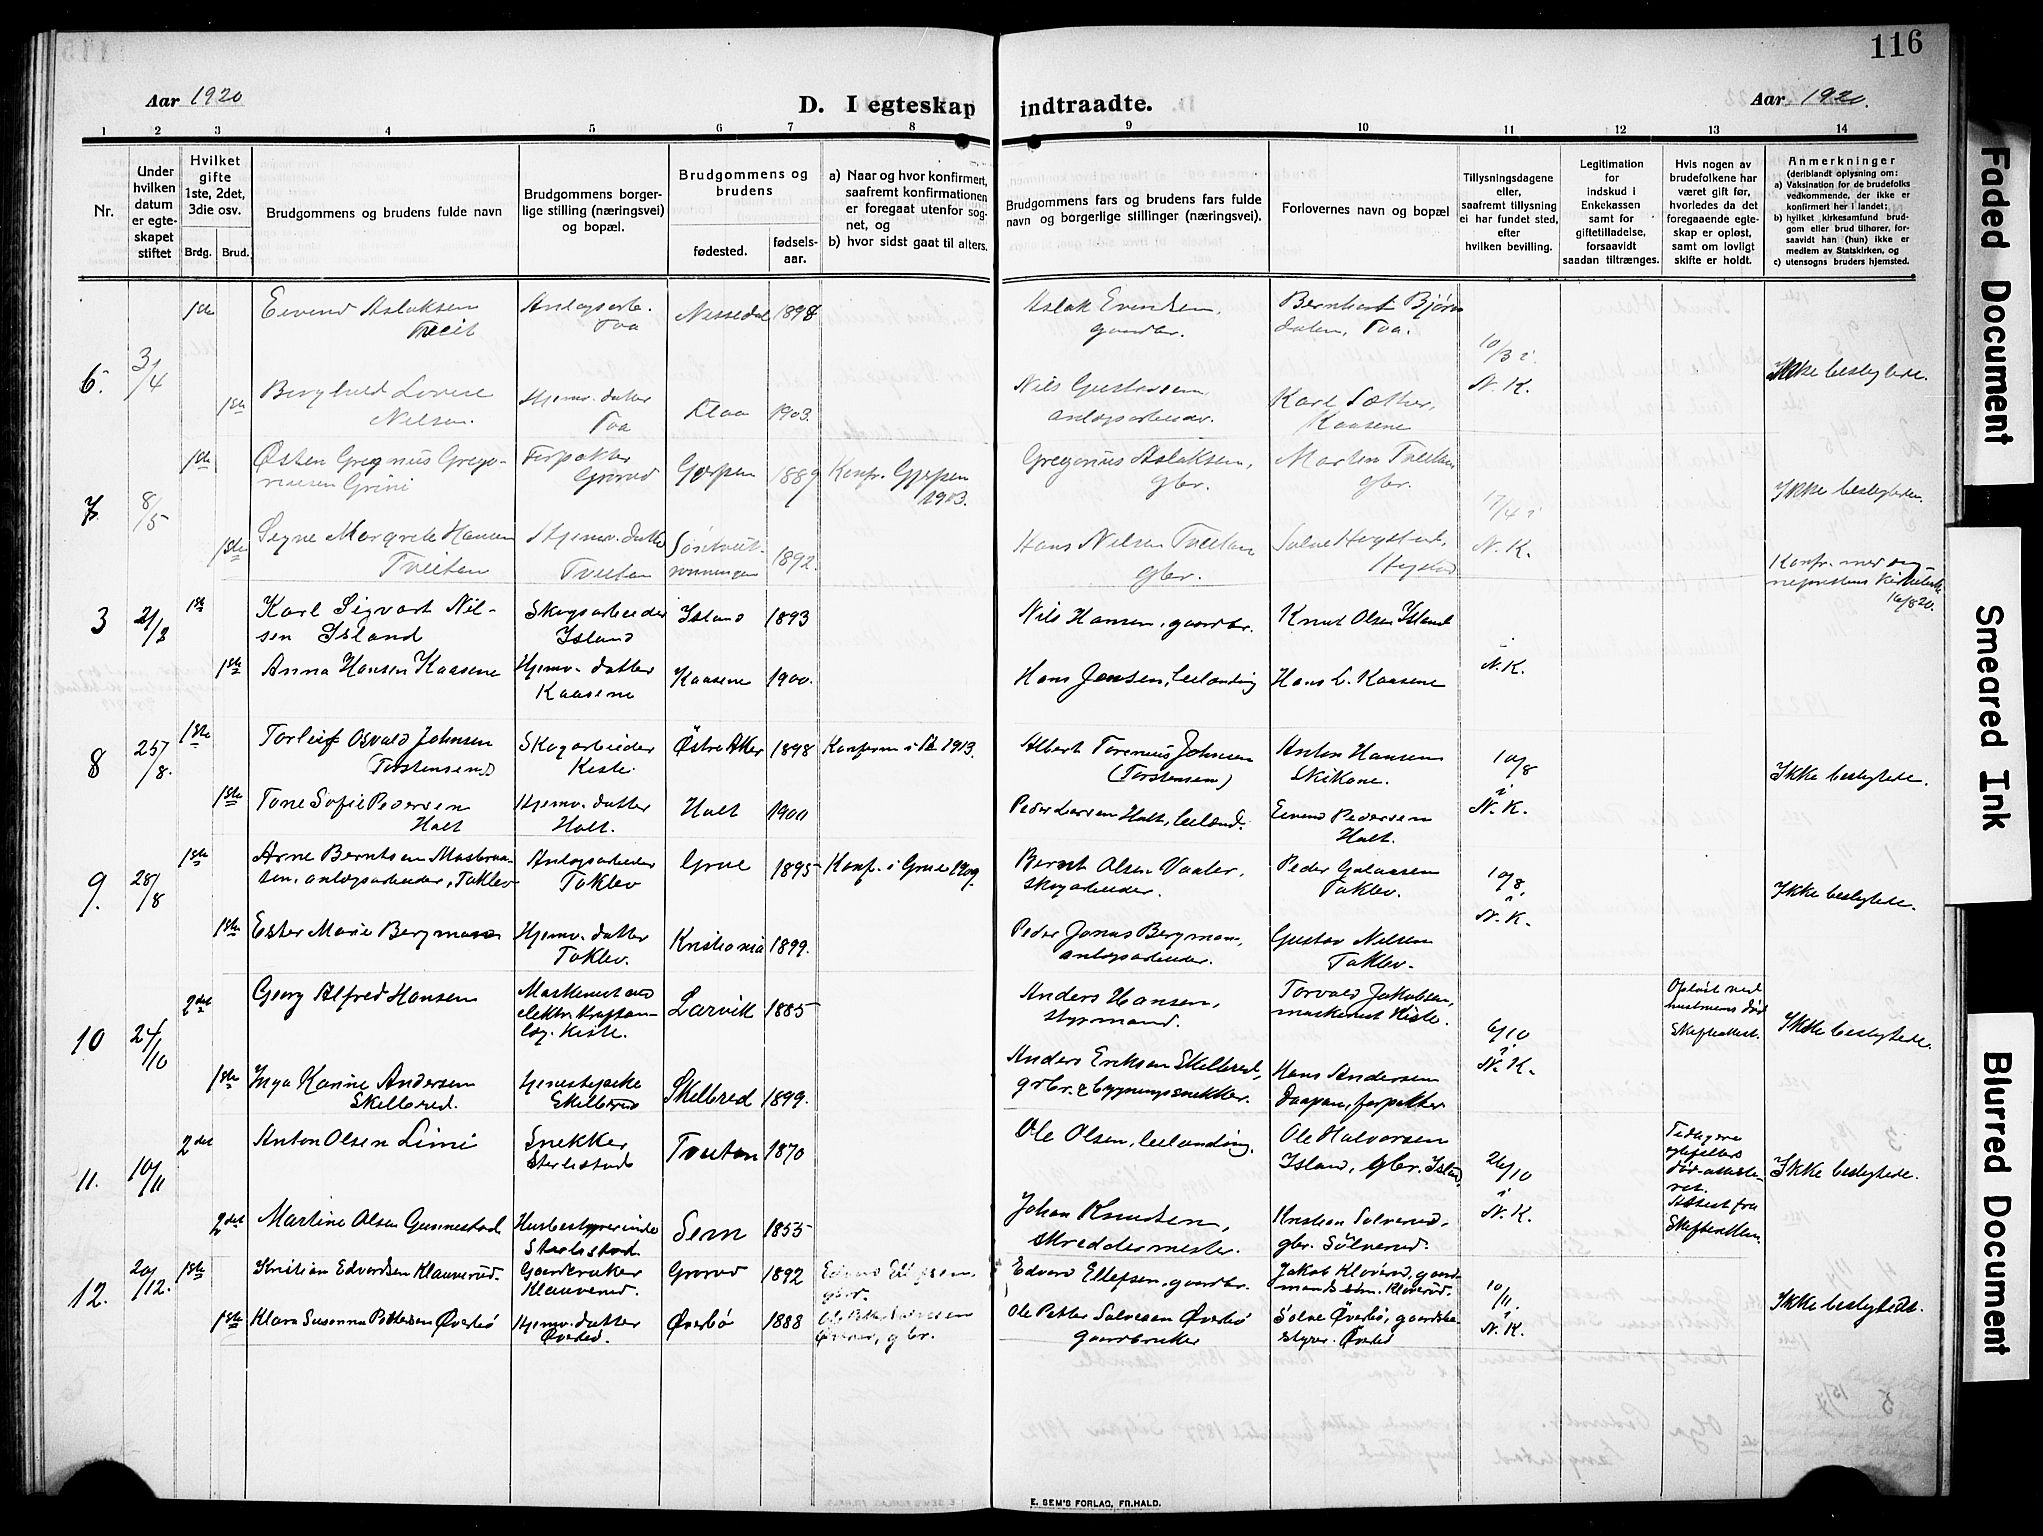 116
Aar 1920
D. I egteskap indtraadte.
Aar 1920.
1 2 3 4 5 6 7 8 9 10 11 12 13 14
Nr.
Under hvilken datum er egteskapet stiftet
Hvilket gifte 1ste, 2det, 3die osv.
Brdg. Brud.
Brudgommens og brudens fulde navn
Brudgommens borgerlige stilling (næringsvei) og bopæl.
Brudgommens og brudens
fødested.
fødselsaar.
a) Naar og hvor konfirmert, saafremt konfirmationen er foregaat utenfor sognet, og
b) hvor sidst gaat til alters.
Brudgommens fars og brudens fars fulde navn og borgerlige stillinger (næringsvei).
Forlovernes navn og bopæl
Tillysningsdagene eller, saafremt tillysning ei har fundet sted, efter hvilken bevilling.
Legitimation for indskud i Enkekassen samt for giftetilladelse, forsaavidt saadan tiltrænges.
Hvis nogen av brudefolkene har været gift før, hvorledes da det foregaaende egteskap er opløst, samt om lovligt skifte er holdt.
Anmerkninger (deriblandt oplysning om:
a) Vaksination for de brudefolks vedkommende, der ikke er konfirmert her i landet;
b) hvilket kirkesamfund brudgom eller brud tilhører, forsaavidt han (hun) ikke er medlem av Statskirken, og
c) utensogns bruders hjemsted.
6. 3/4 1ste Eivend Aslaksen Tveit
Anlogsarb. Toa Nissedal 1898
Aslak Evensen, gaardbr.
Bernhart Bjørndalen, Toa.
10/3 i N. K.
Ikke beslegtede.
1ste Borghild Lovise Nilsen.
Hjemv. datter Toa Klaa 1903.
Nils Gustavsen anlogsarbeider.
Karl Sæther, Kaasene
7. 8/5 1ste Østen Gregorius Gregoriussen Grini
Forpakter Grorud Gjerpen 1889 Konfr. Gjerpen 1903.
Gregorius Aslaksen, gbr.
Marten Tveitan gbr.
17/4 i N. K.
Ikke beslegtede.
1ste Signe Margrete Hansen Tveiten
Hjemv. datter Tveiten 1892.
Hans Nilsen Tveitan gbr.
Solve Hogstad, Hogstad
16/8 20.
3 21/2 1ste Karl Sigvart Nilsen Island
Skogsarbeider Island Island 1893
Nils Hansen, gaardbr. Knut Olsen Island
i N. K.
1ste Anna Hansen Kaasene
Hjemv. datter Kaasene Kaasene 1900.
Hans Jensen, leilænding Hans L. Kaasene
8 25/8. 1ste Torleif Osvald Johnsen Torstensen
Skogarbeider Kiste. Østre Aker 1898 Konferm i 1913.
Albert Torenius Johnsen (Torstensen)
Anton Hansen Skikane.
10/8 i N. K.
Ikke beslegtede.
1ste Tone Sofie Pedersen Holt
Hjemv. datter Holt. Holt 1900
Peder Larsen Holt, leilænd.
Eivend Pedersen Holt.
9. 28/8 1ste Arne Berntsen Mastbraaten, anlogsarbeider, Toklev
Anlogsarbeider Toklev Grue 1895 Konf. i Grue 1909.
Bernt Olsen Vaaler, skogarbeider.
Peder Galaasen Toklev.
10/8, i N. K.
Ikke beslegtede.
1ste Ester Marie Bergman
Hjemv. datter Toklev. Kristiania 1899.
Peder Jonas Bergman, anlogsarbeider.
Gustav Nilsen Toklev.
10 24/10 2det Georg Alfred Hansen
Maskenist ved elektr. kraftanlæg. Kiste. Larvik 1885
Anders Hansen, styrmand.
Torvald Jakobsen, maskenist Kiste.
6/10 i N. K.
Opløst ved hustruens død Skifteattest.
Ikke beslegtede.
1ste Inga Karine Andersen Skilbred.
tjenestepike Skilbred Skilbred 1899.
Anders Eriksen Skilbred, grbr. & bygningssnekker.
Hans Andersen Daapan, forpakter
11. 10/11 2det Anton Olsen Limi
Snekker Sterlestad Tveitan 1870
Ole Olsen, leilænding.
Ole Halvorsen Island, gbr. Island.
26/10 i N. K.
Tidligere egtefellers død attesteret. Attest fra Skifteretten.
Ikke beslegtede.
2det Martine Olsen Gunnestad
Husbestyrerinde Sterlestad. Sem 1855
Johan Knudsen, skreddermester.
Kristian Solverud, gbr. Sølverud.
12. 20/12. 1ste Kristian Edvardsen Klauverud.
Gaardbruker Klauverud. Grorud 1892 Edvard Ellefsen, gbr.
Edvard Ellefsen, gaardbr.
Jakob Kloverud, gaardmandssøn. Kloverud.
10/11. i N. K.
Ikke beslegtede.
1ste Klara Susanna Pettersen Øverbø
Hjemv. datter Øverbø. Øverbø 1888
Ole Petter Solvesen Øverbø gaardbruker
Solve Øverbø, gaardsbestyrer. Øverbø
E. SEM'S FORLAG, FR.HALD.
Faded Document
Smeared Ink
Blurred Document